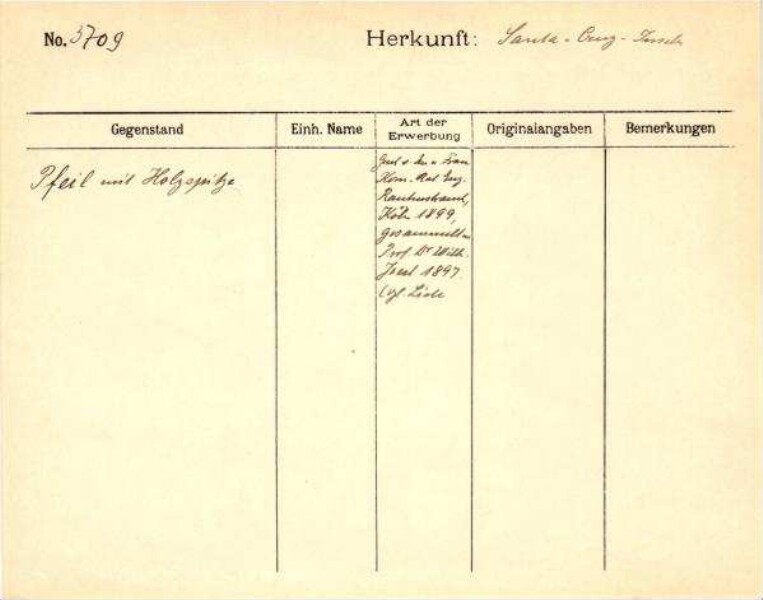 No. 3709 Herkunft: Santa-Cruz-Inseln
Gegenstand
Einh. Name
Art der
Erwerbung
Originalangaben
Bemerkungen
Pfeil mit Holzspitze
Frau
Kom.-Rat Eug.
Rautenstrauch,
Köln 1899,
gesammelt v.
Prof. Dr Wilh.
Joest 1897.
Liste